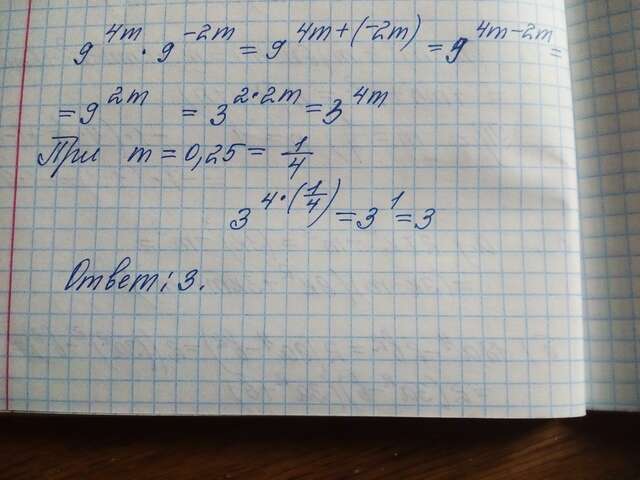 9^{4m} · 9^{-2m} = 9^{4m+(-2m)} = 9^{4m-2m} =
= 9^{2m} = 3^{2·2m} = 3^{4m}
При m = 0,25 = 1/4
3^{4·(1/4)} = 3^1 = 3
Ответ: 3.